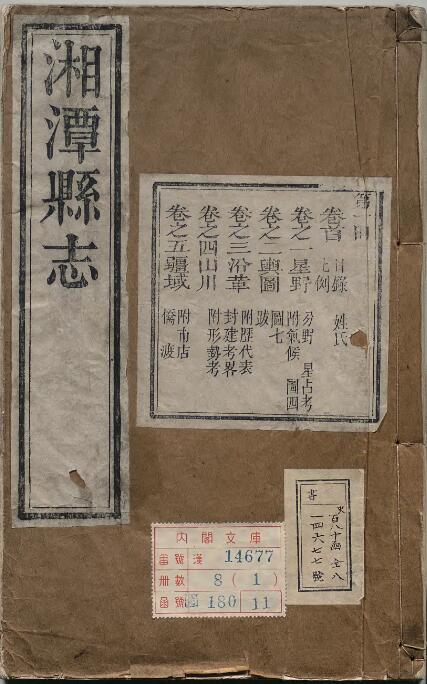 湘潭縣志
卷首 目錄 姓氏
卷之一星野 分野 星占考
附氣候 圖四
卷之二輿圖 圖七
跋
卷之三沿革 附歷代表
封建考畧
卷之四山川 附形勢考
卷之五疆域 附市店
內閣文庫
番號 漢 14677
冊數 8(1)
函號 180 11
一四六七七號